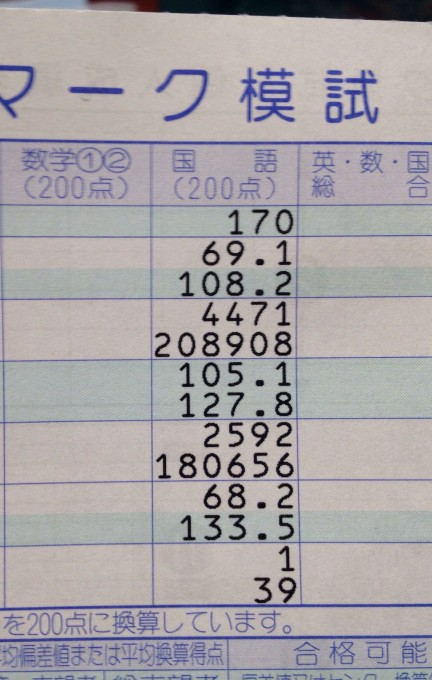 マーク模試
数学①② 国語 英・数・国
(200点) (200点) 総合
170
69.1
108.2
4471
208908
105.1
127.8
2592
180656
68.2
133.5
1
39
を200点に換算しています。
均偏差値または平均換算得点 合格可能